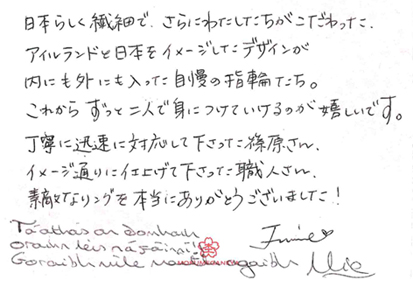 日本らしく繊細で、さらにわたしたちがこだわった、
アイルランドと日本をイメージしたデザインが
内にも外にも入った自慢の指輪たち。
これから ずっと二人で身につけていけるのが嬉しいです。
丁寧に迅速に対応して下さった篠原さん、
イメージ通りに仕上げて下さった職人さん、
素敵なリングを本当にありがとうございました！
Tá áthas an domhain
orainn leis na fáinní
Goraibh míle agaibh